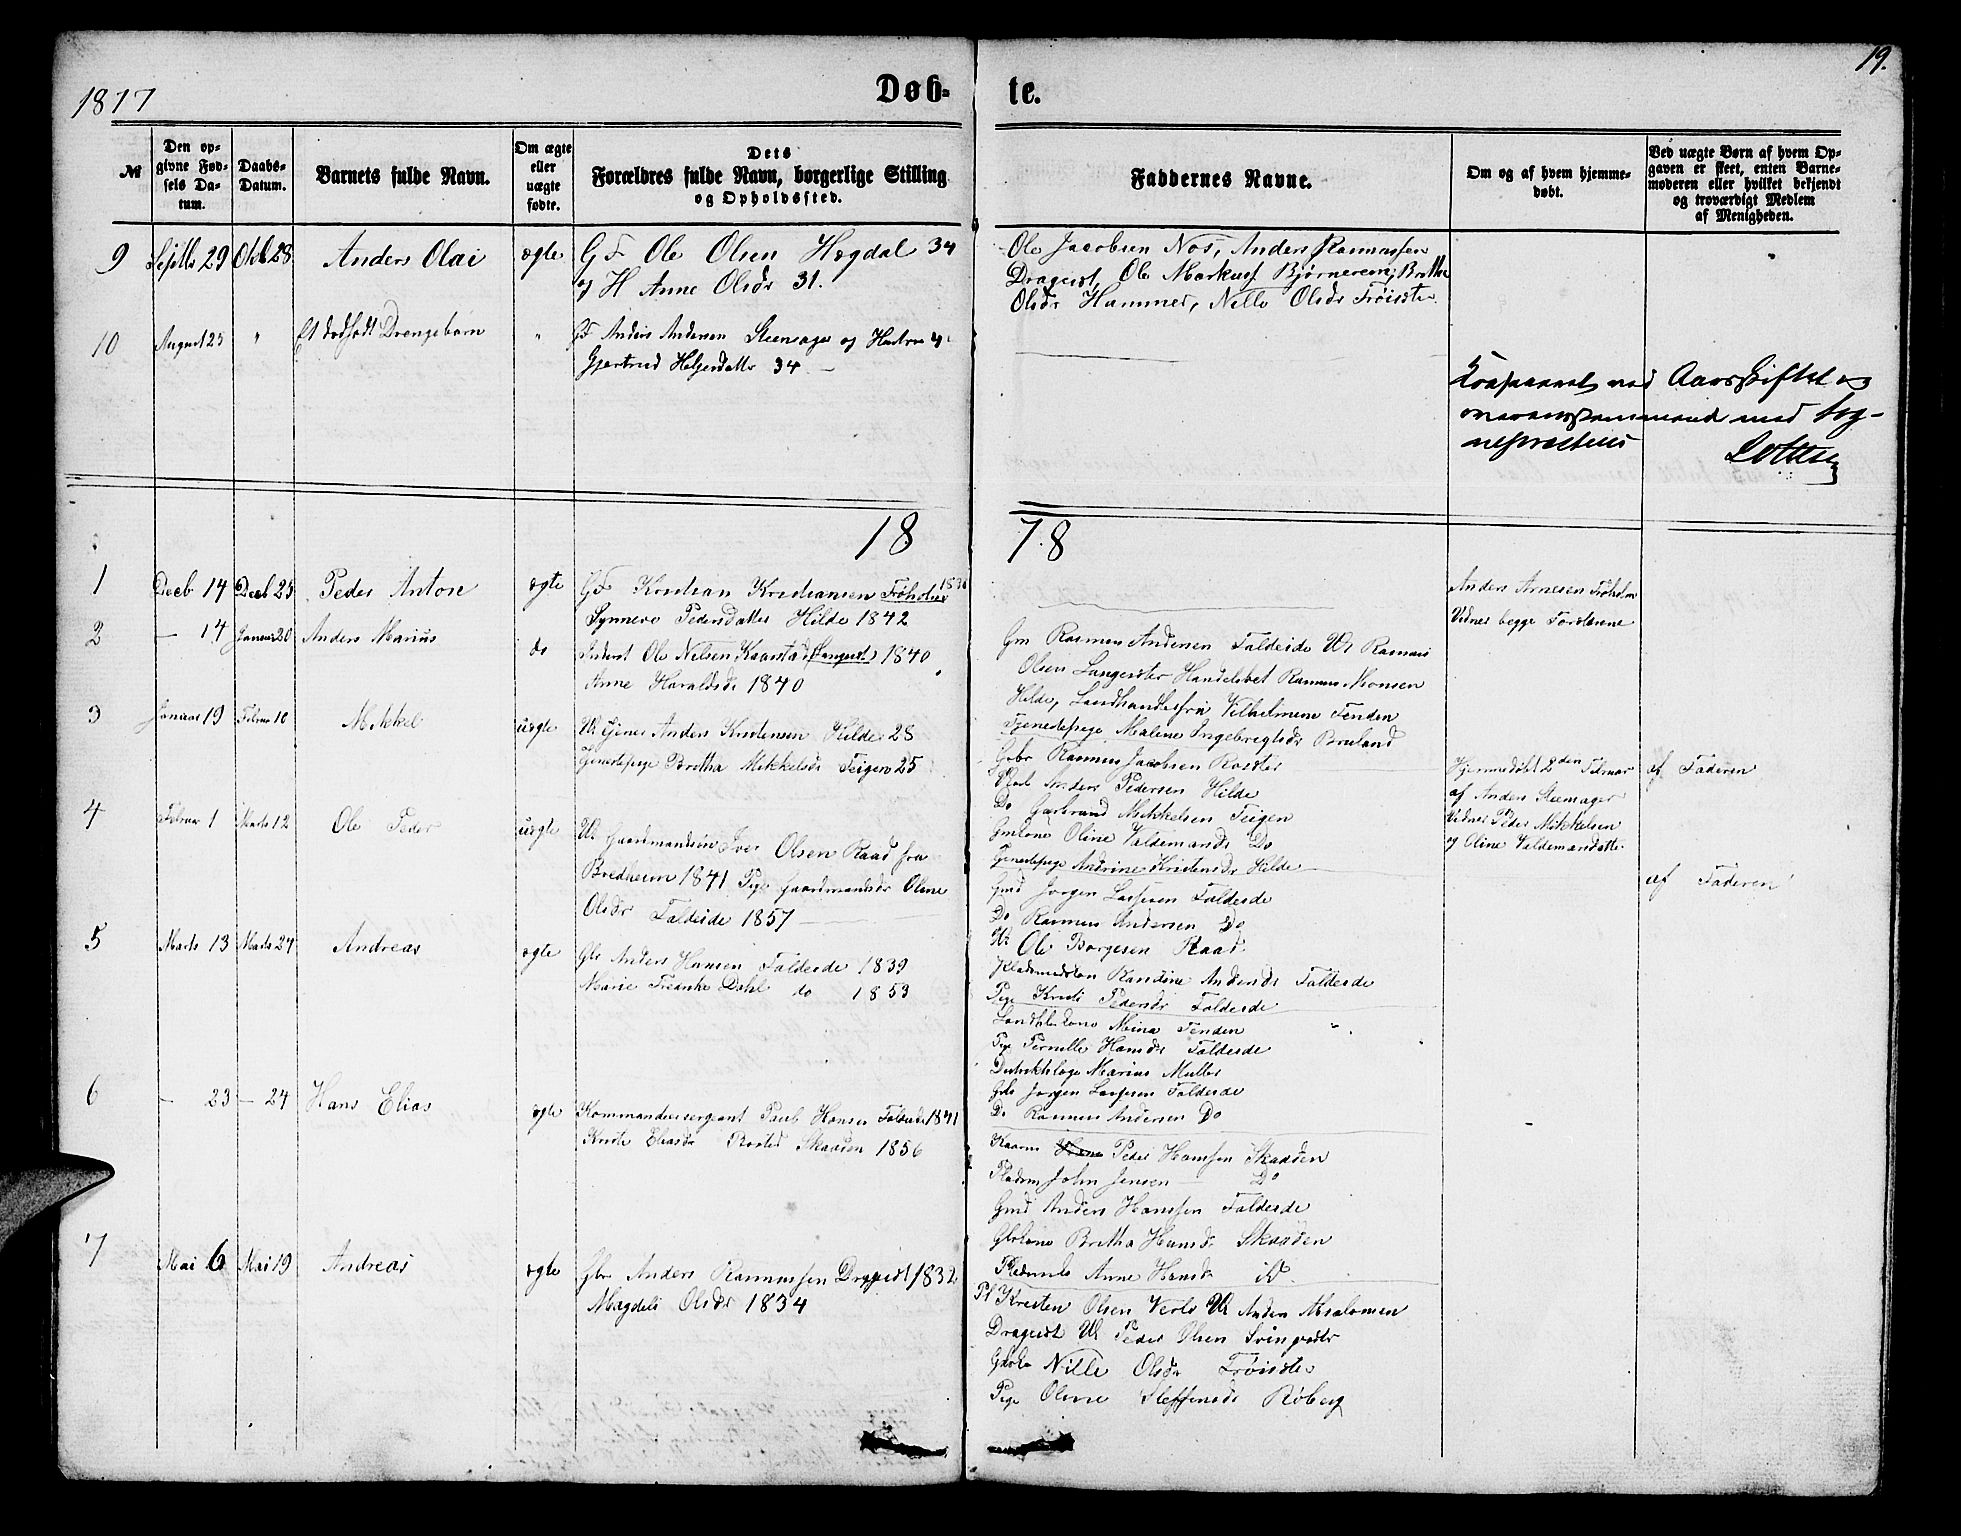 19.
1877
Døb-
te.
№
Den op-
givne Fød-
sels Da-
tum.
Daabs-
Datum.
Barnets fulde Navn.
Om ægte
eller
uægte
fødte.
Dets
Forældres fulde Navn, borgerlige Stilling
og Opholdssted.
Faddernes Navne.
Om og af hvem hjemme-
døbt.
Ved uægte Børn af hvem Op-
gaven er skeet, enten Barne-
moderen eller hvilket bekjendt
og troværdigt Medlem
af Menigheden.
9 Septb 29 Oktb 28 Anders Olai ægte G F Ole Olsen Hogdal 34
og H Anne Olsdr 31.
Ole Jacobsen Nos, Anders Rasmussen
Drageset, Ole Markuss Bjørnereem, Brithe
Olsdr Hammer, Nille Olsdr Frøisetr
10 August 25 " Et dødfødt Drengebarn " GF Anders Andersen Steensager og Hustru
Gjertrud Helgesdatter 34
ved Aarsskiftet og
med Sog-
nepræstens
18
78
1 Decb 14 Decb 25 Peder Anton ægte GF Kristian Kristiansen Frøholm
Synneve Pedersdatter Hilde 1842
Anders Arnesen Frøholm
Vidner begge Forældrene
2 — 14 Januar 20 Anders Marius do Inderst Ole Nelsen Kaarstad 1840
Anne Haraldsdr 1840
Gm Rasmus Andersen Faldeide Uk Rasmus
Olsen Langesæter Handelsbet Rasmus Monsen
Hilde, Landhandlerfru Vilhelmine Tenden
Tjenestepige Malene Ingebregtsdr Bruland
3 Januar 19 Februar 10 Mikkel uægte Uk tjener Anders Kristensen Hilde 28
Tjenestepige Brithe Mikkelsdr Teigen 25
Gbr Rasmus Jacobsen
Anders Pedersen Hilde
Do Gerbrand Mikkelsen Teigen
Gmkone Oline Valdemarsdr Do
Tjenestepige Andrine Kristensdr Hilde
Hjemmedøbt 2den Februar
af Anders Steensager
Vidner Peder Mikkelsen
og Oline Valdemarsdatter
af Faderen
4 Februar 1 Marts 12 Ole Peder uægte Uk Gaardmandsøn Iver Olsen Raad fra
Bredheim 1841 Pige Gaardmandsdr Oline
Olsdr Faldeide 1857
Gmd Jørgen Lassesen Faldeide
Do Rasmus Andersen Do
Uk Ole Børgesen Raad
Randine Andersdr Faldeide
Pige Kristi Pedersdr Faldeide
af Faderen
5 Marts 13 Marts 24 Andreas ægte Gbr Anders Hansen Faldeide 1839
Marie Fredrike Dahl do 1853
Mina Tenden
Pige Pernille Hansdr Faldeide
Distriktslæge Marius Muller
Gbr Jørgen Lassesen Faldeide
Do Rasmus Andersen Do
6 — 23 — 24 Hans Elias ægte Kommandeersergeant Paul Hansen Faldeide 1841
Kristi Eliasdr Skaaden 1856
Peder Hansen Skaaden
John Jensen Do
Gmd Anders Hanssen Faldeide
Gbrkone Brithe Hansdr Skaaden
Anne Hansdr
7 Mai 6 Mai 19 Andreas ægte Gbr Anders Rasmussen Drageset 1832
Magdeli Olsdr 1834
Pl Kresten Olsen Uk Anders Absalomsen
Drageset Uk Peder Olsen
Nille Olsdr Frøisetr
Pige Oline Steffensdr Røberg